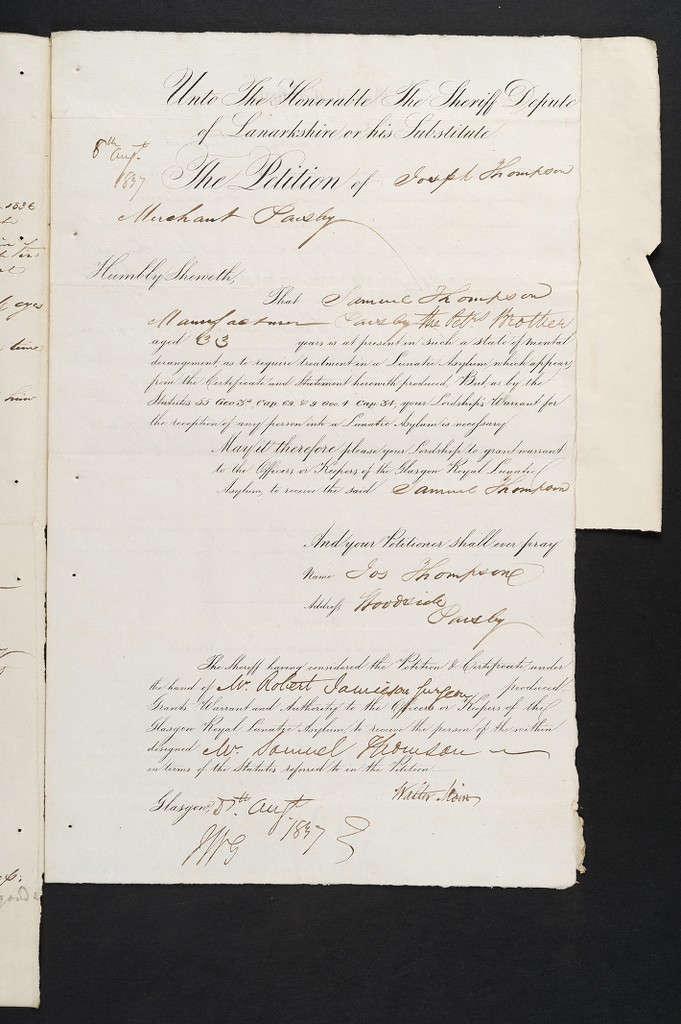 Unto The Honorable The Sheriff Depute
of Lanarkshire or his Substitute
8th Augt.
1837
The Petition of Joseph Thompson
Merchant Paisley
Humbly Sheweth,
That Samuel Thompson
Manufacturer Paisley the Petrs Brother
aged 33 years is at present in such a state of mental
derangement as to require treatment in a Lunatic Asylum which appears
from the Certificate and Statement herewith produced, But as by the
Statutes 55 Geo 3d. Cap. 69. & 9 Geo. 4 Cap. 34, your Lordship's Warrant for
the reception of any person into a Lunatic Asylum is necessary
May it therefore please your Lordship to grant warrant
to the Officers or Keepers of the Glasgow Royal Lunatic
Asylum, to receive the said Samuel Thompson
And your Petitioner shall ever pray
Name Jos Thompson
Address Woodside
Paisley
The Sheriff having considered the Petition & Certificate under
the hand of Mr. Robert Jamieson Surgeon produced
Grants Warrant and Authority to the Officers or Keepers of the
Glasgow Royal Lunatic Asylum, to receive the person of the within
designed Mr. Samuel Thomson
in terms of the Statutes referred to in the Petition
Walter Moir
Glasgow, Augt
1837